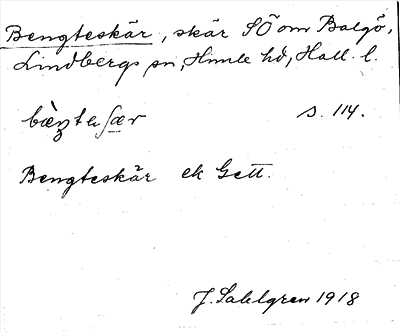 Bengteskär, skär SÖ om Balgö,
Lindbergs sn, Himle hd, Hall. l.
s. 114.
Bengteskär ek Gett.
J. Sahlgren 1918